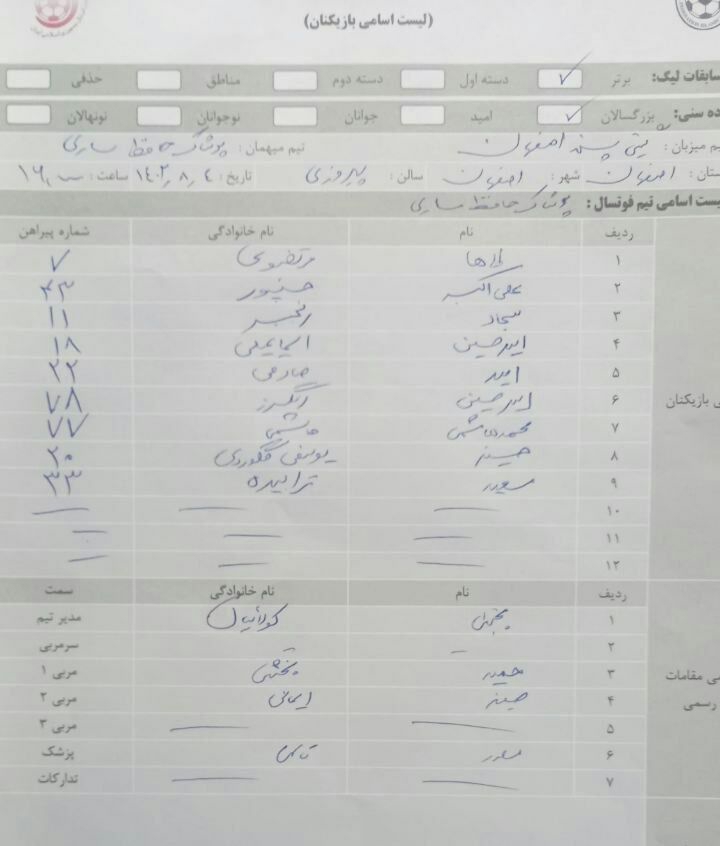 (لیست اسامی بازیکنان)
سابقات لیگ: برتر ✓ دسته اول دسته دوم مناطق حذفی
ده سنی: بزرگسالان ✓ امید جوانان نوجوانان نونهالان
م میزبان: گیتی پسند اصفهان تیم میهمان: پوشاک حافظ ساری
ستان: اصفهان شهر: اصفهان سالن: پیروزی تاریخ: ۱۴۰۲٫۸٫۴ ساعت:
یست اسامی تیم فوتسال: پوشاک حافظ ساری
ردیف نام نام خانوادگی شماره پیراهن
۱ مرتضوی ۷
۲ علی اکبر حسنپور ۴۳
۳ سجاد رنجبر ۱۱
۴ امیرحسین اسماعیلی ۱۸
۵ امید صادقی ۲۲
ی بازیکنان
۶ امیرحسین ۷۸
۷ محمدهاشم هاشمی ۷۷
۸ حسین یوسفی ۲۰
۹ سعید ۳۳
۱۰
۱۱
۱۲
ردیف نام نام خانوادگی سمت
۱ مجتبی مدیر تیم
۲ سرمربی
۳ حمید بخشی مربی ۱
می مقامات
۴ حسین ایمانی مربی ۲
رسمی
۵ مربی ۳
۶ پزشک
۷ تدارکات